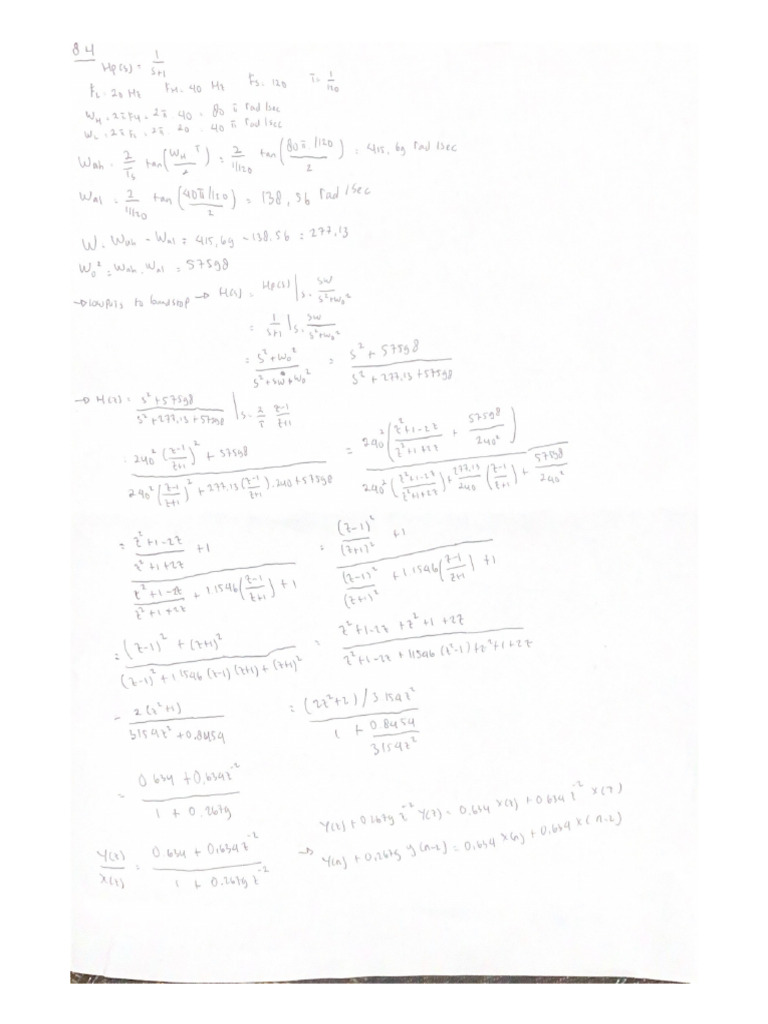 84
Hp(s) = 1/(s+1)
FL = 20 Hz FH = 40 Hz Fs = 120 T = 1/120
WH = 2πFH = 2π . 40 = 80 π rad/sec
WL = 2πFL = 2π . 20 = 40 π rad/sec
Wah = 2/Ts tan(WH T/2) = 2/(1/120) tan((80π/120)/2) = 415,69 rad/sec
Wal = 2/(1/120) tan((40π/120)/2) = 138,56 rad/sec
W = Wah - Wal = 415,69 - 138.56 = 277,13
W0² = Wah . Wal = 57598
→ lowpass to bandstop → H(s) = Hp(s) | s = sW/(s²+W0²)
= 1/(s+1) | s = sW/(s²+W0²)
= (s²+W0²)/(s²+sW+W0²) = (s²+57598)/(s²+277,13+57598)
→ H(z) = (s²+57598)/(s²+277,13+57598) | s = 2/T (z-1)/(z+1)
= (240² ((z-1)/(z+1))² + 57598)/(240² ((z-1)/(z+1))² + 277,13 ((z-1)/(z+1)) . 240 + 57598) = (240² ((z²+1-2z)/(z²+1+2z) + 57598/240²))/(240² ((z²+1-2z)/(z²+1+2z)) + 277,13/240 ((z-1)/(z+1)) + 57598/240²)
= ((z²+1-2z)/(z²+1+2z) + 1)/((z²+1-2z)/(z²+1+2z) + 1.1546 ((z-1)/(z+1)) + 1) = ((z-1)²/(z+1)² + 1)/((z-1)²/(z+1)² + 1.1546 ((z-1)/(z+1)) + 1)
= ((z-1)² + (z+1)²)/((z-1)² + 1.1546 (z-1)(z+1) + (z+1)²) = (z²+1-2z+z²+1+2z)/(z²+1-2z+1.1546 (z²-1)+z²+1+2z)
= 2(z²+1)/(3.154z²+0.8454) = ((2z²+2)/3.154z²)/(1 + 0.8454/3.154z²)
= (0.634 + 0.634z⁻²)/(1 + 0.2679)
Y(z)/X(z) = (0.634 + 0.634z⁻²)/(1 + 0.2679z⁻²)
Y(z) + 0.2679 z⁻² Y(z) = 0.634 X(z) + 0.634 z⁻² X(z)
→ Y(n) + 0.2679 y(n-2) = 0,634 X(n) + 0.634 X(n-2)